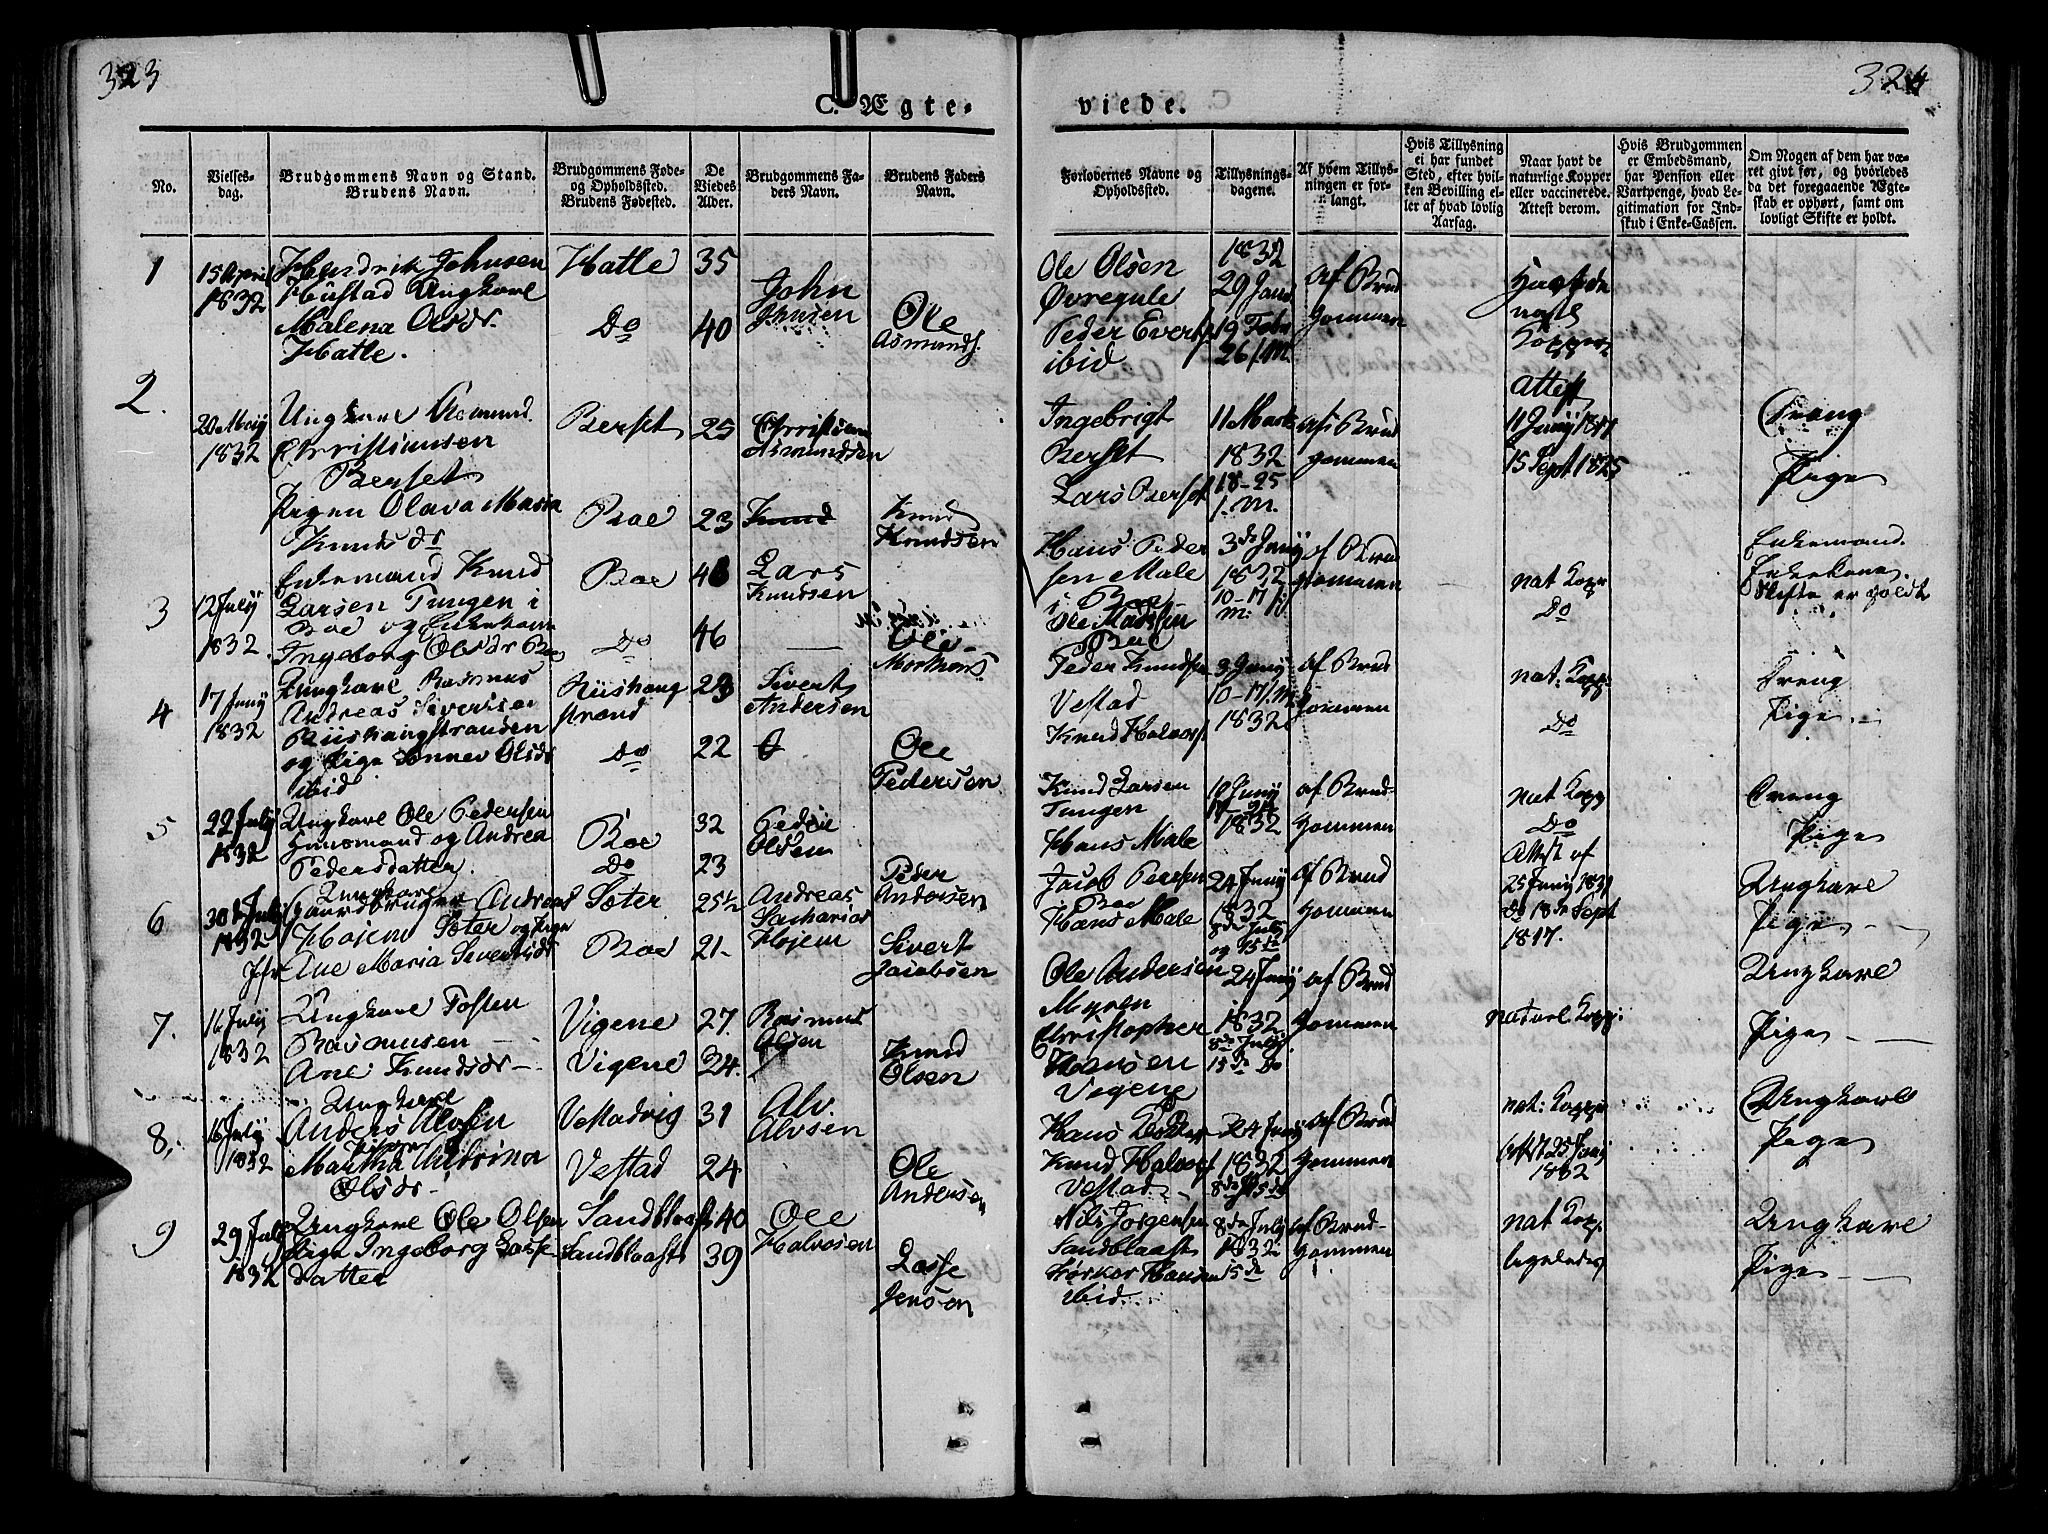 323
324
C. Ægte-
viede.
No.
Vielses-
dag.
Brudgommens Navn og Stand.
Brudens Navn.
Brudgommens Føde-
og Opholdsted.
Brudens Fødested.
De
Viedes
Alder.
Brudgommens Fa-
ders Navn.
Brudens Faders
Navn.
Forlovernes Navne og
Opholdsted.
Tillysnings-
dagene.
Af hvem Tillys-
ningen er for-
langt.
Hvis Tillysning
ei har fundet
Sted, efter hvil-
ken Bevilling el-
ler af hvad lovlig
Aarsag.
Naar havt de
naturlige Kopper
eller vaccinerede.
Attest derom.
Hvis Brudgommen
er Embedsmand,
har Pension eller
Vartpenge, hvad Le-
gitimation for Ind-
skud i Enke-Cassen.
Om Nogen af dem har væ-
ret givt før, og hvorledes
da det foregaaende Ægte-
skab er ophørt, samt om
lovligt Skifte er holdt.
1
15 April
1832
Hendrik Johnsen
Hustad Ungkarl
Malena Olsdr.
Hatle.
Hatle
Do
35
40
John
Johnsen
Ole
Asmunds.
Ole Olsen
Øvregule
Peder Evers
ibid
1832
29 Janu
19 Febr
26 f. M.
af Brud
gommen
Havt de
natl
Kopper
2.
20 Maij
1832
Ungkarl Asmund
Christiansen
Berset
Pigen Olava Maria
Knudsdr
Berset
Boe
25
23
Christian
Asmundsen
Knud
Knud
Knudsen
Ingebrigt
Berset
Lars Berset
11 Marts
1832
18-25
f. M.
af Brud
gommen
Attest
11 Junij 1817
15 Sept. 1825
Dreng
Pige
3
12 Julij
1832
Enkemand Knud
Larsen Tungen i
Boe og Enkekone
Ingeborg Olsdr Boe
Boe
Do
46
46
Lars
Knudsen
Ole
Hans Peder
sen Male
i Boe
Ole Madsen
Boe
3de Junij
1832
10-17 f.
m.
af Brud
gommen
nat Kopp
Do
Enkemand.
Enkekone.
Skifte er holdt
4
17 Junij
1832
Ungkarl Rasmus
Andreas Sivertsen
Riishangstranden
og Pige Sonnev Olsdr
ibid
Riishang
strand
Do
23
22
Sivert
Andersen
Ole
Pedersen
Peder Knudsen
Vestad
Knud Halvors
3 Junij
10-17 f. M.
1832
af Brud
gommen
nat. Kopp.
Do
Dreng
Pige
5
22 Julij
1832
Ungkarl Ole Pedersen
Huusmand og Andrea
Pedersdatter.
Boe
Do
32
23
Peder
Olsen
Peder
Andersen
Knud Larsen
Tungen
Hans Male
1832
af Brud-
gommen
nat Kopp
Do
Dreng
Pige
6
30 Julij
1832
Ungkarl
Gaardbruger Andreas
Hojem Soter og Pige
Jfr Ane Maria Sivertsdr
Soter
Boe
25½
21.
Andreas
Sacharias
Hojem
Sivert
Jacobsen
Jacob Persen
Boe
Hans Male
24 Junij
1832
8de Julij
og 15de
af Brud
gommen
Attest af
25 Junij 1831
Do 18de Sept
1817.
Ungkarl
Pige
7.
16 Julij
1832
Ungkarl Tosten
Rasmusen
Ane Knudsdr
Vigene
Vigene
27.
24.
Rasmus
Olsen
Knud
Olsen
Ole Andersen
Myren
Christopher
Hansen
Vigene
24 Junij
1832
8de Julij
15de Do
af Brud
gommen
naturl Kopp:
Ungkarl
Pige
8.
16 Julij
1832
Ungkarl
Anders Alvsen
Pigen
Martha
Olsdr
Vestadvig
Vestad
31
24
Alv.
Alvsen
Ole
Andersen
Hans
Knud Halvors
Vestad
24 Junij
1832
8de 15de
af Brud
gommen
nat: Kopp
Att 25 Junij
1832
Ungkarl
Pige
9
29 Julij
1832
Ungkarl Ole Olsen
Pige Ingeborg Lasse
datter
Sandblaast
Sandblaast
40
39
Ole
Halvosen
Lasse
Jensen
Nils Jorgensen
Sandblaast
Hansen
ibid
8de Julij
1832
15de
af Brud-
gommen
nat Kopp.
ligeledes
Ungkarl
Pige